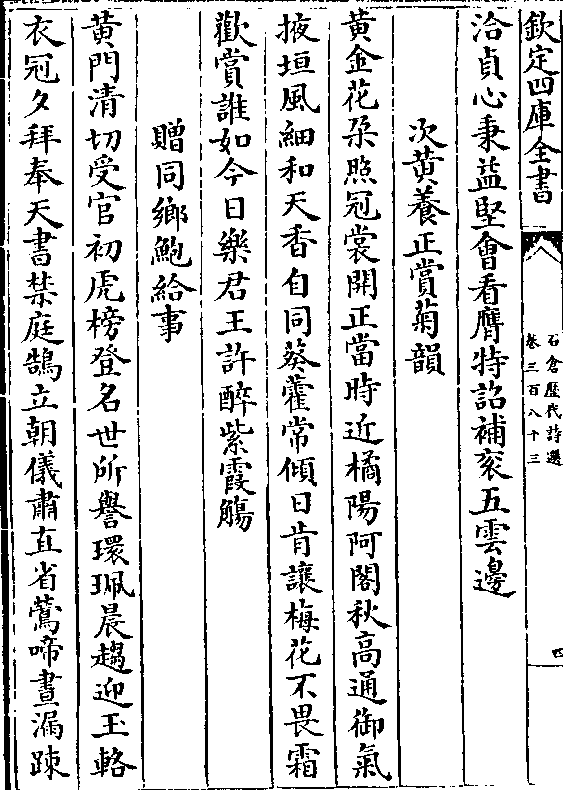 欽定四庫全書
石倉歷代詩選
卷三百八十三
四
洽貞心秉益堅會看膺特詔補衮五雲邊
次黄養正賞菊韻
黄金花朶照冠裳開正當時近橘陽阿閣秋高通御氣
掖垣風細和天香自同葵藿常傾日肯讓梅花不畏霜
歡賞誰如今日樂君王許醉紫霞觴
贈同鄉鮑給事
黄門清切受官初虎榜登名世所譽環珮晨趨迎玉輅
衣冠夕拜奉天書禁庭鵠立朝儀肅直省鶯啼晝漏踈